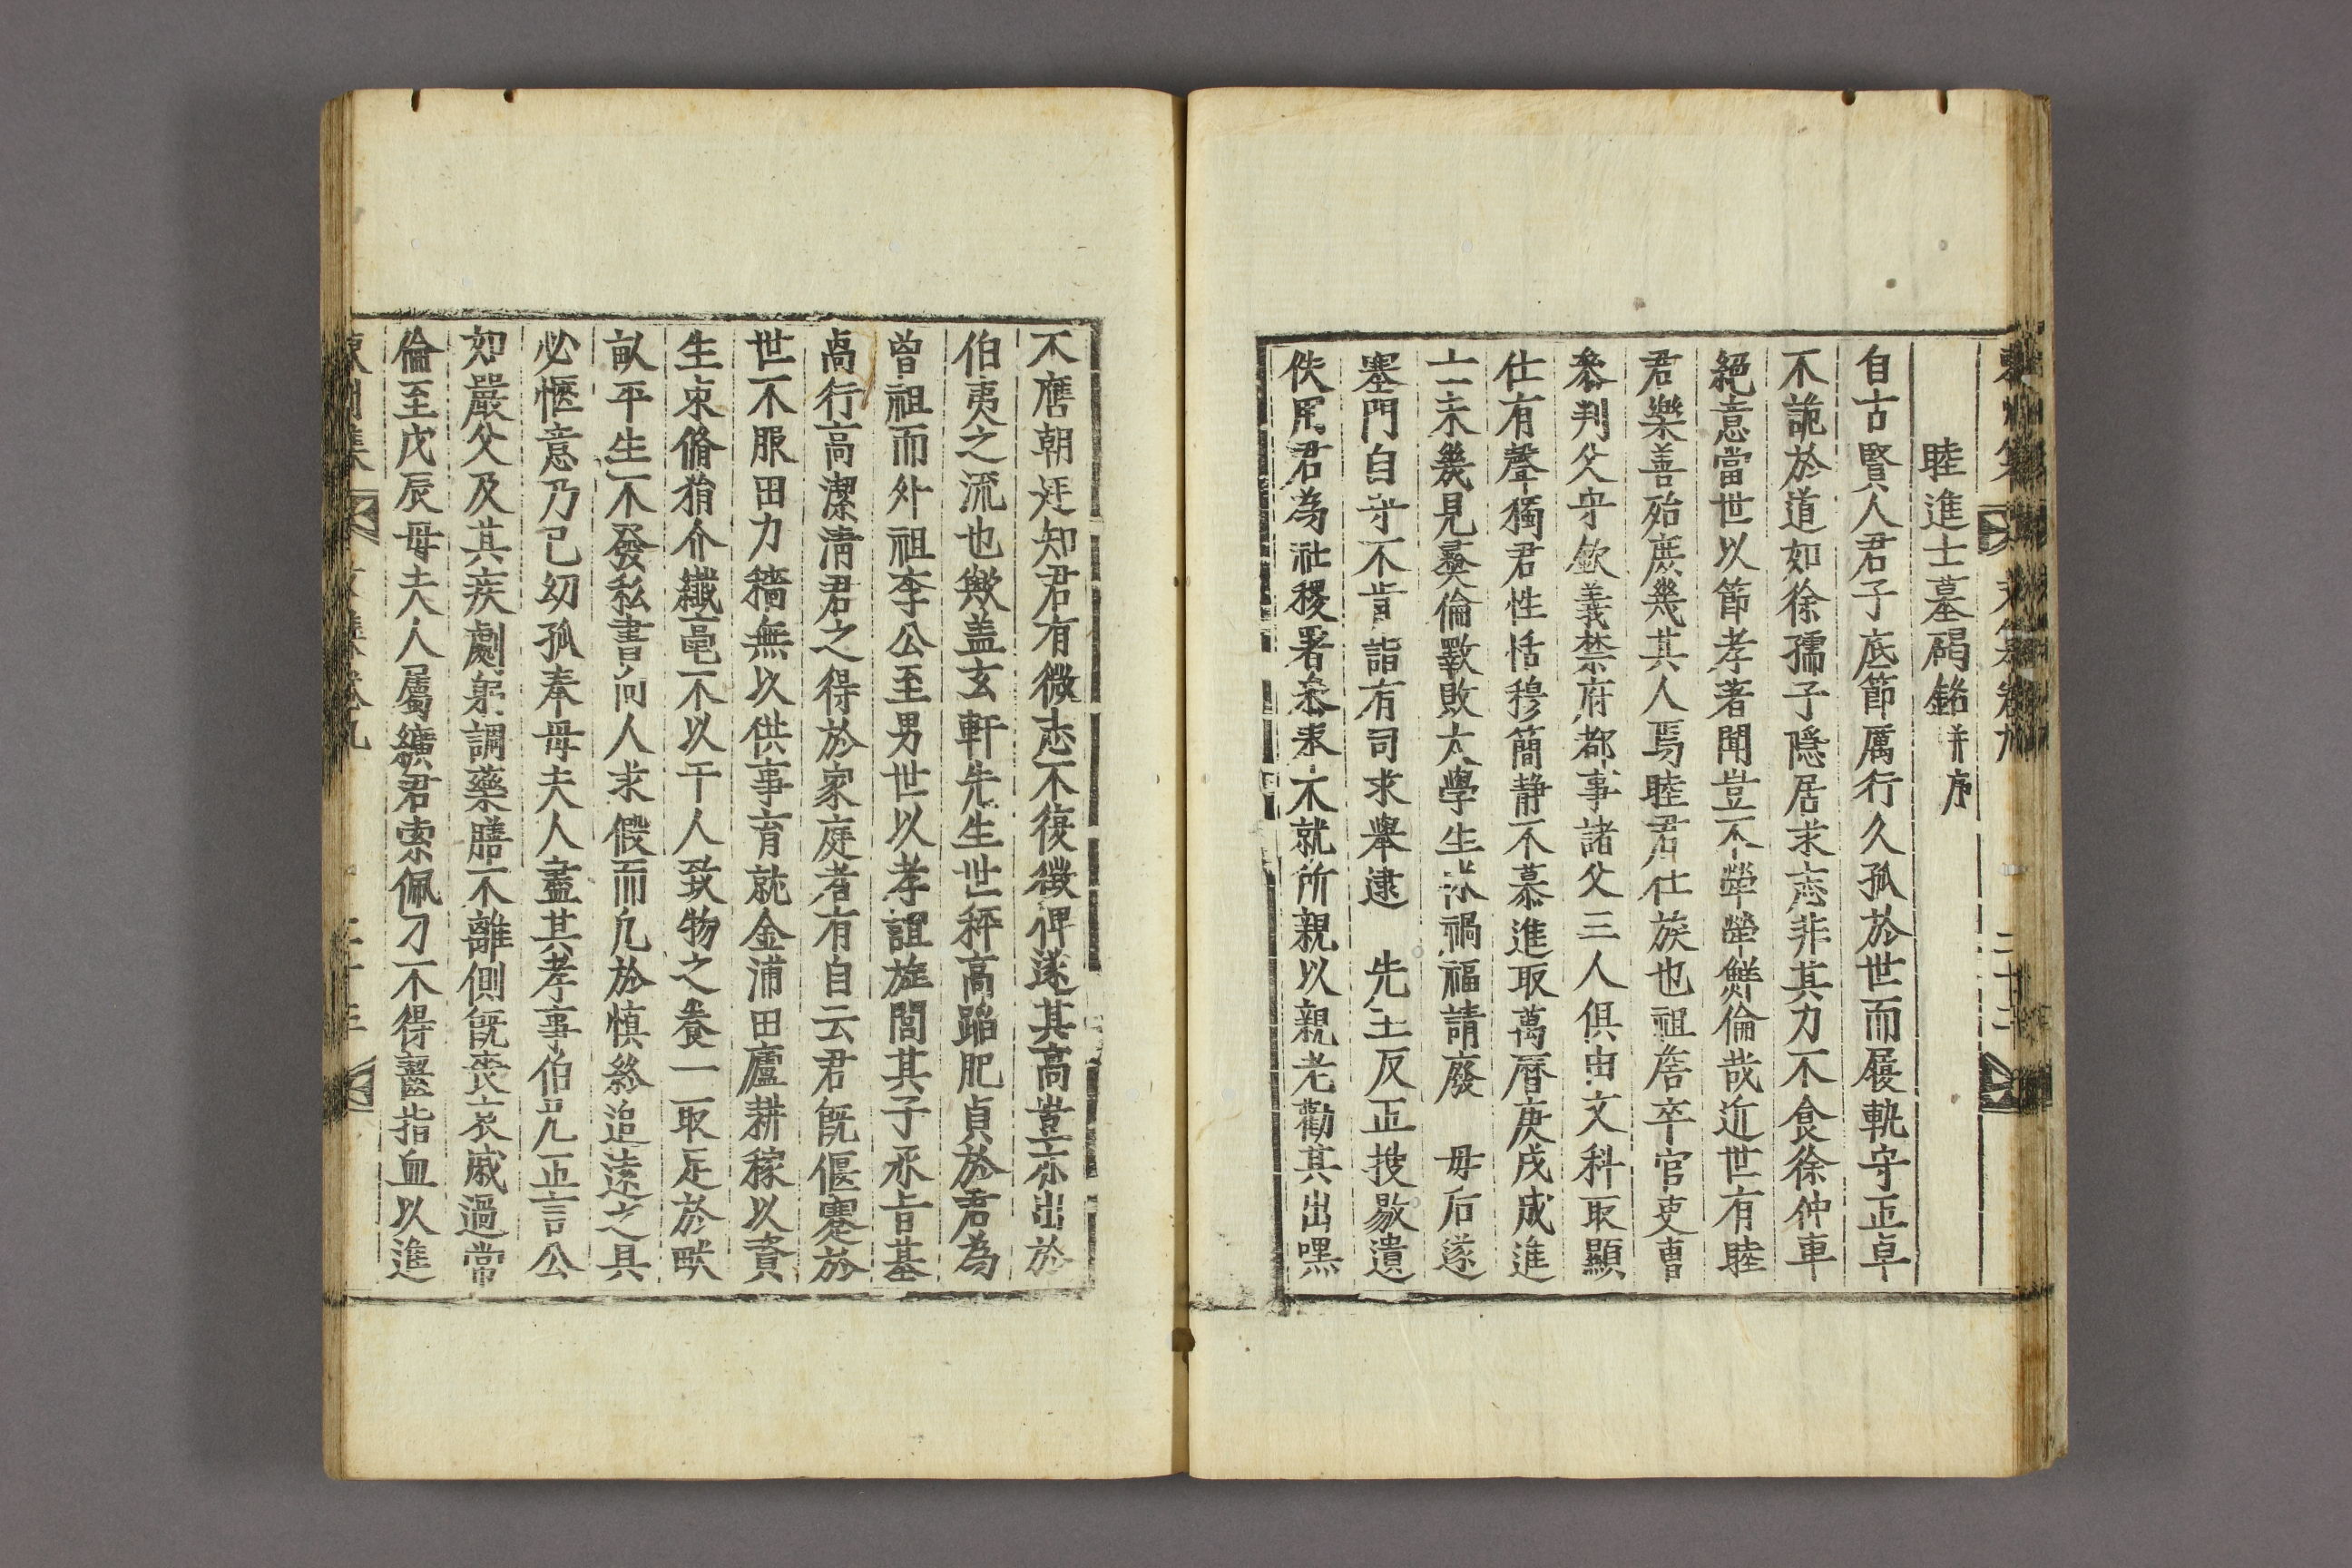 睦進士墓碣銘 并序
自古賢人君子底節厲行久孤於世而履軌守正卓
不詭於道如徐孺子隱居求志非其力不食徐仲車
絕意當世以節孝著聞豈不犖犖鮮倫哉近世有睦
君樂善殆庶幾其人焉睦君仕族也祖詹卒官吏曹
叅判父守欽義禁府都事諸父三人俱由文科取顯
仕有聲獨君性恬穆簡靜不慕進取萬曆庚戌成進
士未幾見彝倫斁敗太學生怵禍福請廢 母后遂
塞門自守不肯詣有司求舉逮 先王反正搜敭遺
佚用君為社稷署叅奉不就所親以親老勸其出嘿
不膺朝廷知君有微志不復徵俾遂其高豈亦出於
伯夷之流也歟盖玄軒先生世稱高蹈肥貞於君為
曾祖而外祖李公至男世以孝誼旌閭其子承旨基
卨行高潔清君之得於家庭者有自云君既偃蹇於
世不服田力穡無以供事育就金浦田廬耕稼以資
生束脩狷介纖毫不以干人致物之養一取足於畎
畝平生不發私書向人求假而凡於慎終追遠之具
必愜意乃已幼孤奉母夫人盡其孝事伯兄正言公
如嚴父及其疾劇躬調藥膳不離側既喪哀戚過常
倫至戊辰母夫人屬纊君索佩刀不得齧指血以進
東州集 文集卷九